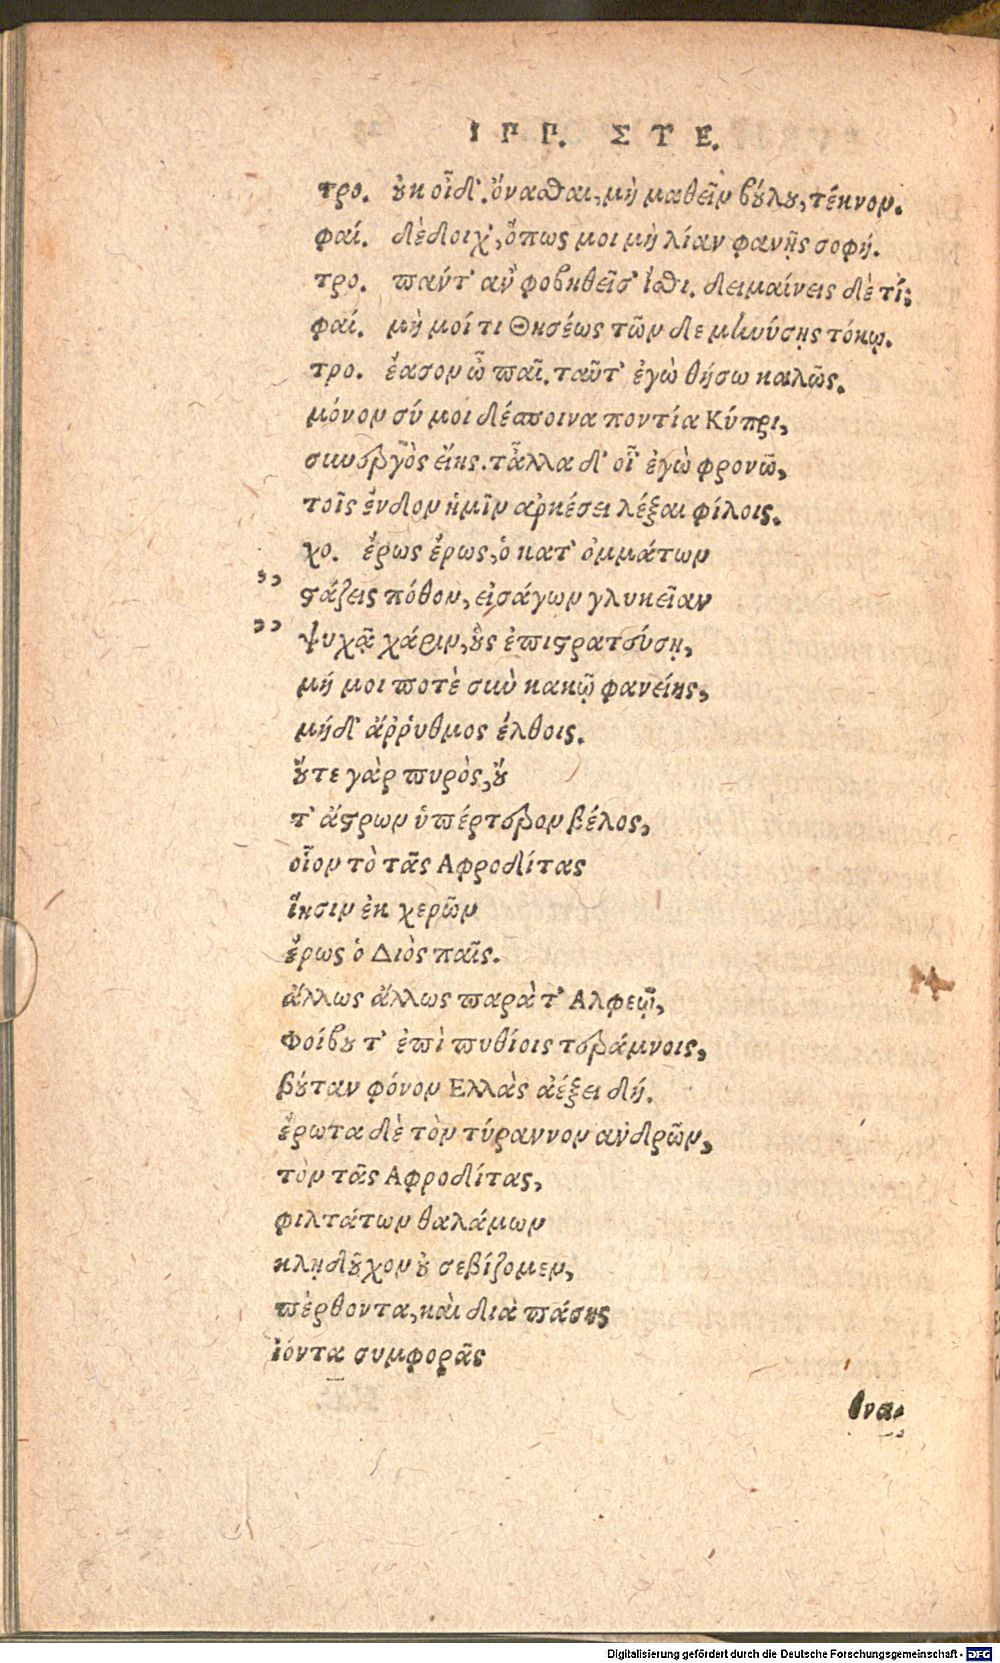 ΙΠΠ. ΣΤΕ.
τρο. οὐκ οἶδ'. ὄνασθαι, μὴ μαθεῖν βούλου, τέκνον.
φαί. δέδοιχ', ὅπως μοι μὴ λίαν φανῇς σοφή.
τρο. πάντ' ἂν φοβηθεῖσ' ἴσθι. δειμαίνεις δὲ τί;
φαί. μὴ μοί τι Θησέως τῶνδε μηνύσῃς τόκῳ.
τρο. ἔασον ὦ παῖ. ταῦτ' ἐγὼ θήσω καλῶς.
μόνον σύ μοι δέσποινα ποντία Κύπρι,
συνεργὸς εἴης. τἄλλα δ' οἷ' ἐγὼ φρονῶ,
τοῖς ἔνδον ἡμῖν ἀρκέσει λέξαι φίλοις.
χο. ἔρως ἔρως, ὁ κατ' ὀμμάτων
,, στάζεις πόθον, εἰσάγων γλυκεῖαν
,, ψυχᾷ χάριν, οὓς ἐπιστρατεύσῃ,
μή μοι ποτὲ σὺν κακῷ φανείης,
μήδ' ἄῤῥυθμος ἔλθοις.
οὔτε γὰρ πυρὸς, οὔ
τ' ἄστρων ὑπέρτερον βέλος,
οἷον τὸ τᾶς Αφροδίτας
ἵησιν ἐκ χερῶν
ἔρως ὁ Διὸς παῖς.
ἄλλως ἄλλως παρὰ τ' Αλφεῷ,
Φοίβου τ' ἐπὶ πυθίοις τεράμνοις,
βούταν φόνον Ελλὰς ἀέξει δή.
ἔρωτα δὲ τὸν τύραννον ἀνδρῶν,
τὸν τᾶς Αφροδίτας,
φιλτάτων θαλάμων
κλῃδοῦχον οὐ σεβίζομεν,
πέρθοντα, καὶ διὰ πάσης
ἰόντα συμφορᾶς
θνα-
Digitalisierung gefördert durch die Deutsche Forschungsgemeinschaft - DFG